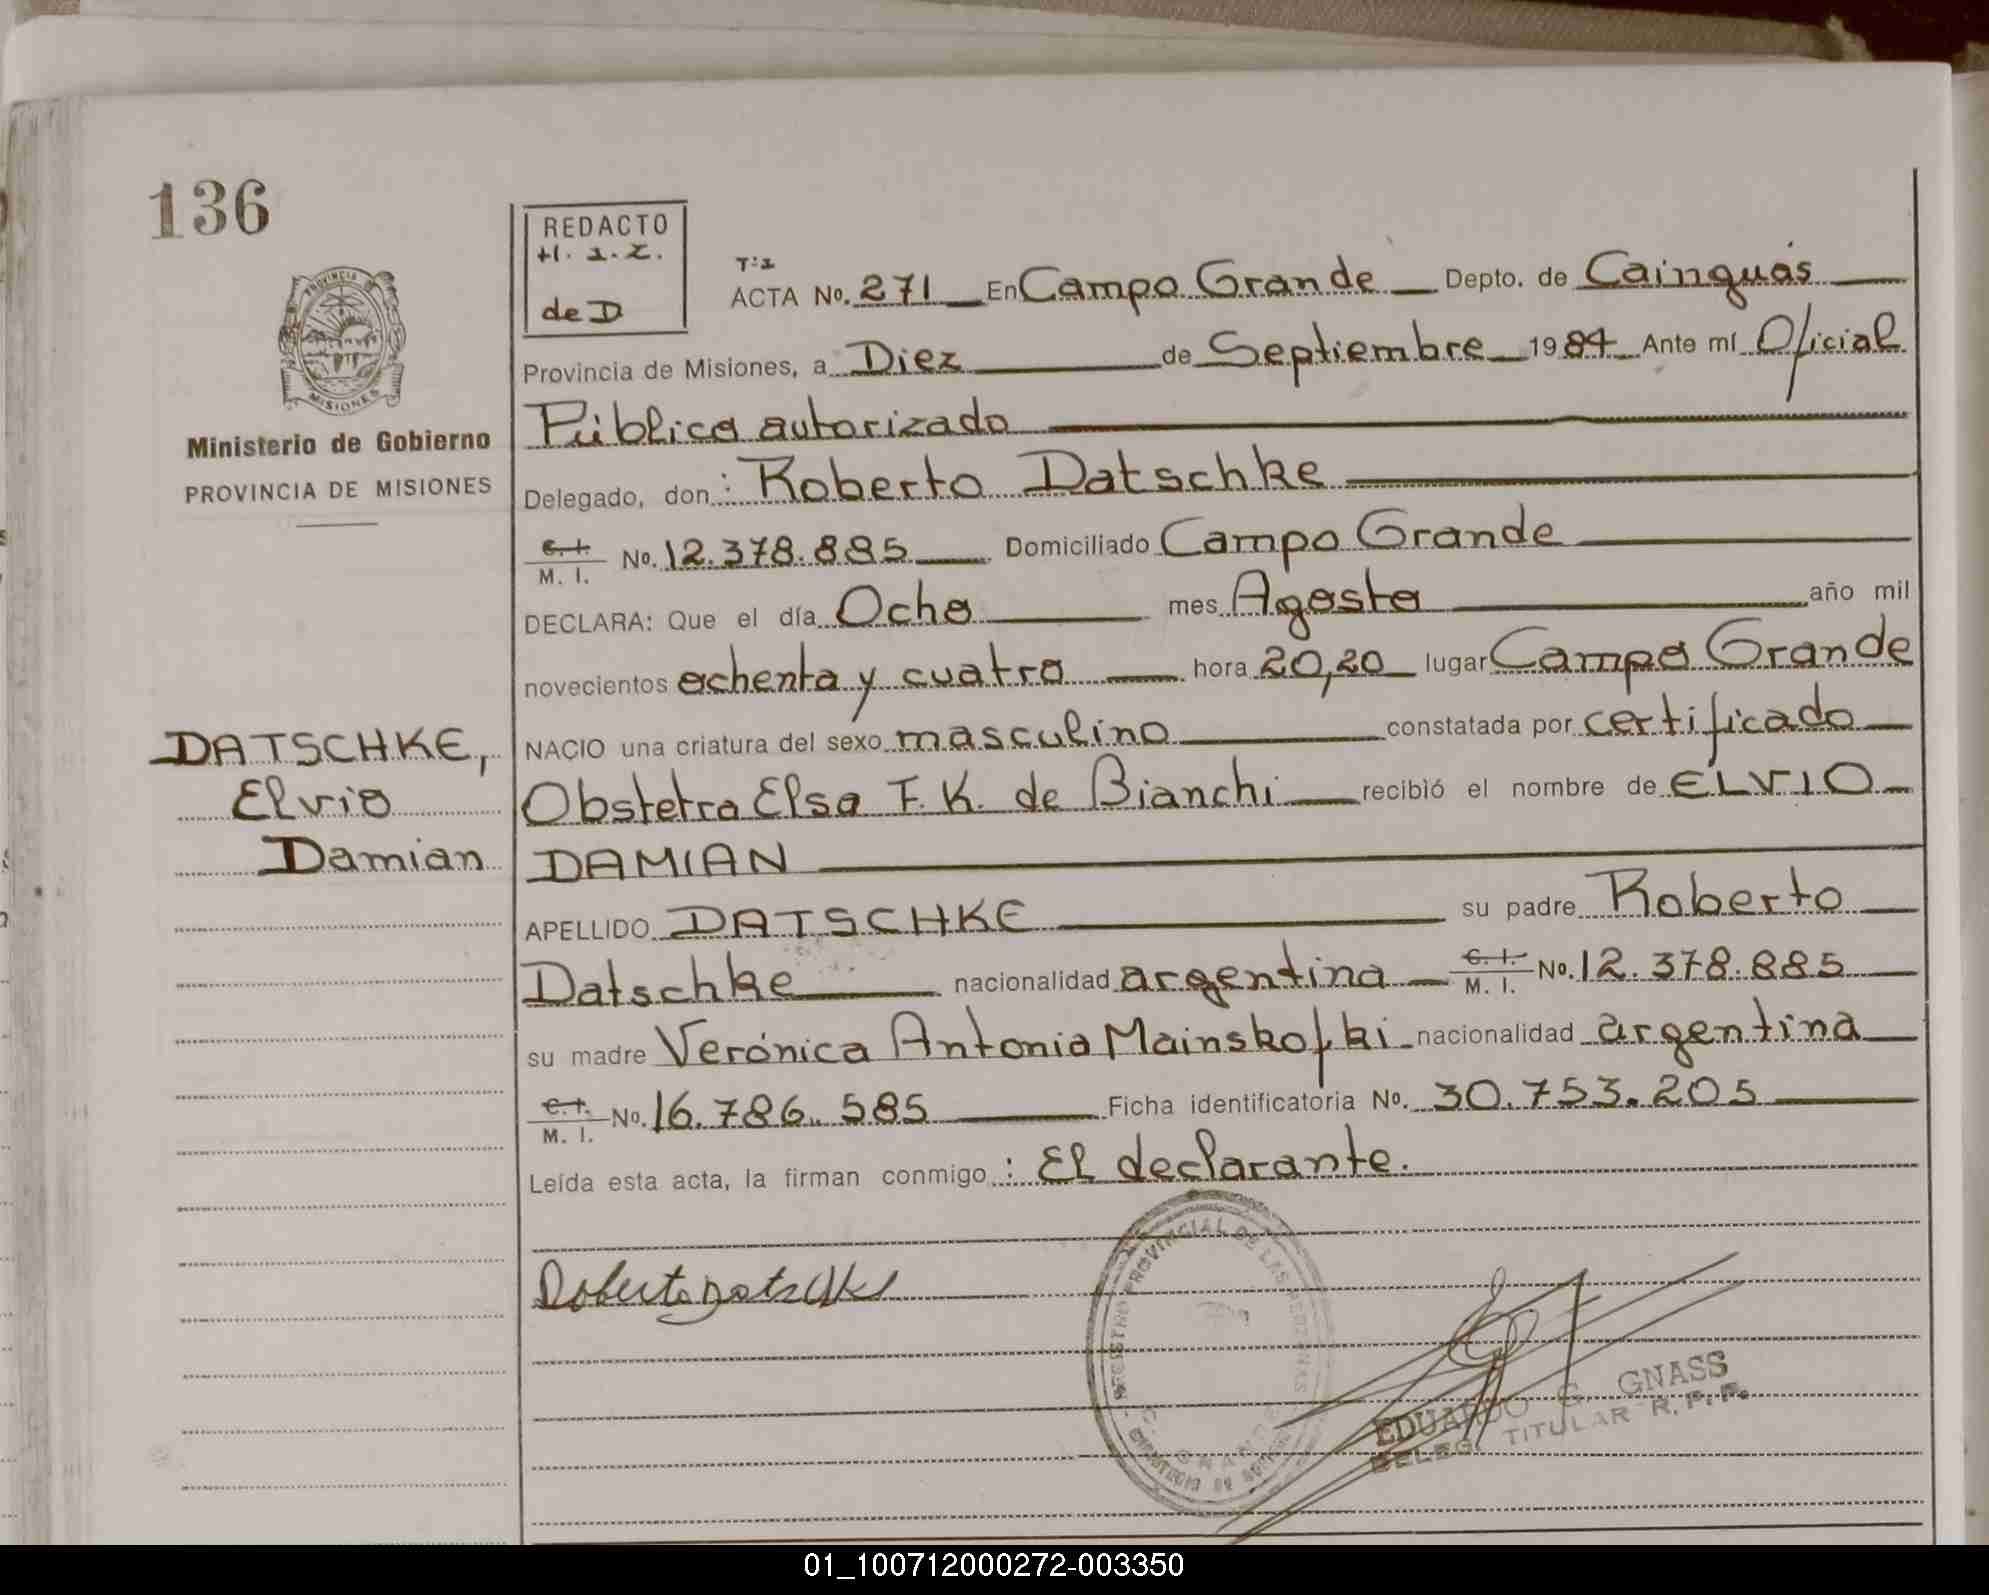 136
REDACTO
H. I. Z.
de D
PROVINCIA
MISIONES
Ministerio de Gobierno
PROVINCIA DE MISIONES
Tº1
ACTA No. 271 En Campo Grande Depto. de Cainguás
Provincia de Misiones, a Diez de Septiembre 1984 Ante mí Oficial
Público autorizado
Delegado, don: Roberto Datschke
C. I. M. I. No. 12.378.885 Domiciliado Campo Grande
DECLARA: Que el día Ocho mes Agosto año mil
novecientos ochenta y cuatro hora 20,20 lugar Campo Grande
NACIO una criatura del sexo masculino constatada por certificado
Obstetra Elsa F. K. de Bianchi recibió el nombre de ELVIO
DAMIAN
APELLIDO DATSCHKE su padre Roberto
Datschke nacionalidad argentina C. I. M. I. No. 12.378.885
su madre Verónica Antonia Mainskofki nacionalidad argentina
C. I. M. I. No. 16.786.585 Ficha identificatoria No. 30.753.205
Leída esta acta, la firman conmigo: El declarante.
DATSCHKE,
Elvio
Damian
Roberto Datschke
REGISTRO PROVINCIAL DE LAS PERSONAS
EDUARDO G. GNASS
DELEG. TITULAR R. P. P.
01_100712000272-003350